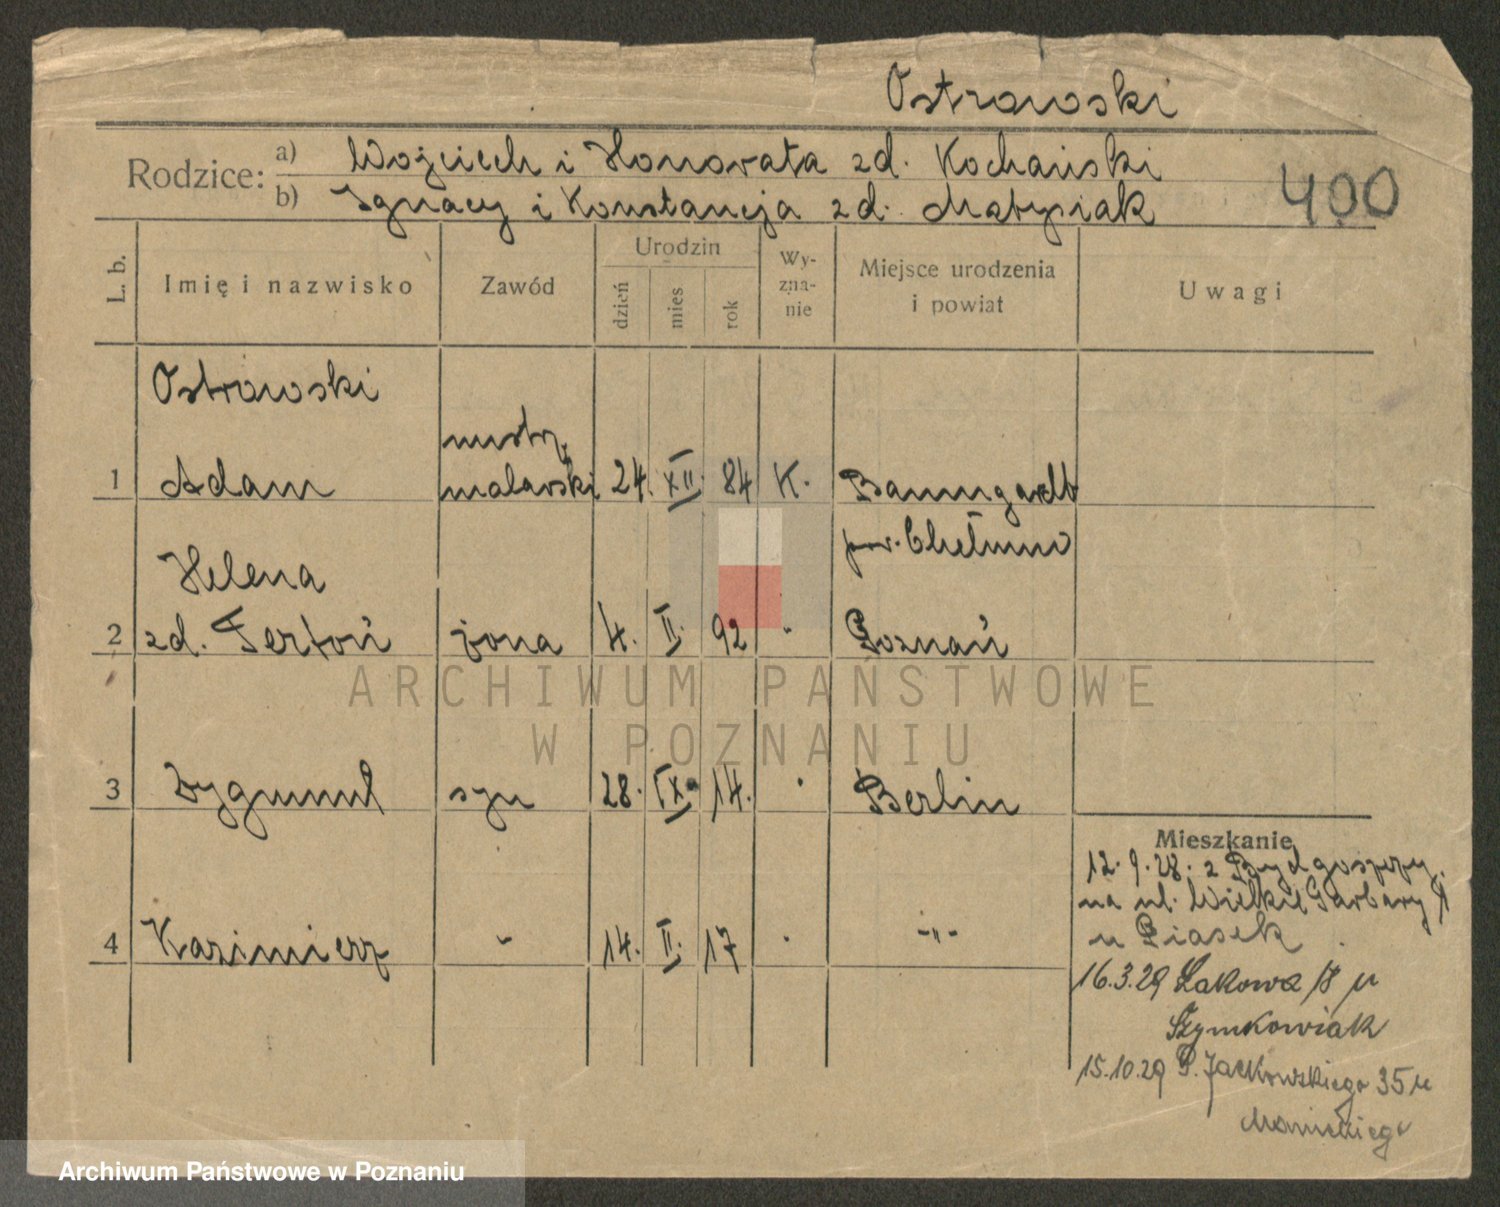 Ostrowski
Rodzice: a) Wojciech i Honorata zd. Kochański
b) Ignacy i Konstancja zd. Matysiak
400
L. b. Imię i nazwisko Zawód Urodzin dzień mies rok Wy-zna-nie Miejsce urodzenia i powiat Uwagi
Ostrowski
mistrz.
1 Adam malarski 24. XII. 84 K. Baumgardt
pow. Chełmno
Helena
2 zd. Fertoń żona 4. II. 92 " Poznań
3 Zygmunt syn 28. IX. 14. " Berlin
Mieszkanie
12.9.28. z Bydgoszczy
na ul. Wielkie Garbary
u Piasek
4 Kazimierz " 14. II. 17 " -"-
16.3.29 Łąkowa u
Szymkowiak
15.10.29 P. Jackowskiego 35 u
ARCHIWUM PAŃSTWOWE
W POZNANIU
Archiwum Państwowe w Poznaniu